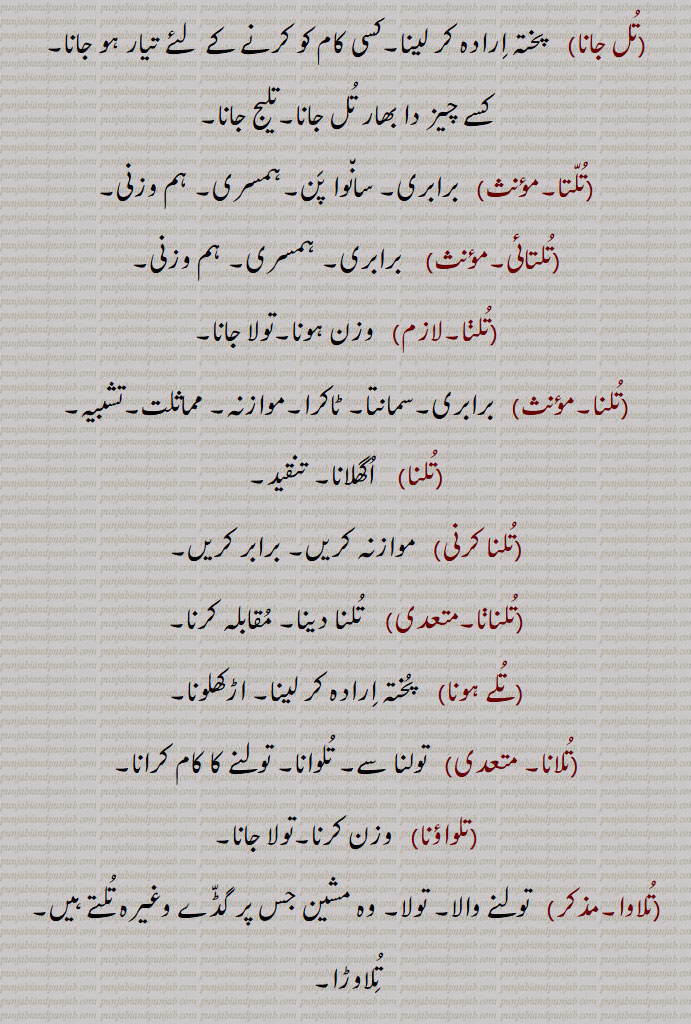 (تُل جانا) پختہ اِرادہ کر لینا۔کسی کام کو کرنے کے لئے تیار ہو جانا۔
کسے چیز دا بھار تُل جانا۔تلیج جانا۔
(تُلّتا۔مؤنث) برابری۔ سانّوا پَن۔ہمسری۔ ہم وزنی۔
(تُلتائی۔مؤنث) برابری۔ ہمسری۔ ہم وزنی۔
(تُلنا۔لازم) وزن ہونا۔تولا جانا۔
(تُلنا۔مؤنث) برابری۔سمانتا۔ ٹاکرا۔موازنہ۔ مماثلت۔تشبیہ۔
(تُلنا) اُگھلانا۔ تنقید۔
(تُلنا کرنی) موازنہ کریں۔ برابر کریں۔
(تُلنانا۔متعدی) تُلنا دینا۔ مُقابلہ کرنا۔
(تُلے ہونا) پُختہ اِرادہ کر لینا۔ اڑکھلونا۔
(تُلانا۔ متعدی) تولنا سے۔ تُلوانا۔ تولنے کا کام کرانا۔
(تلواؤنا) وزن کرنا۔تولا جانا۔
(تُلاوا۔مذکر) تولنے والا۔ تولا۔ وہ مشین جس پر گڈّے وغیرہ تُلتے ہیں۔
تُلاوڑا۔